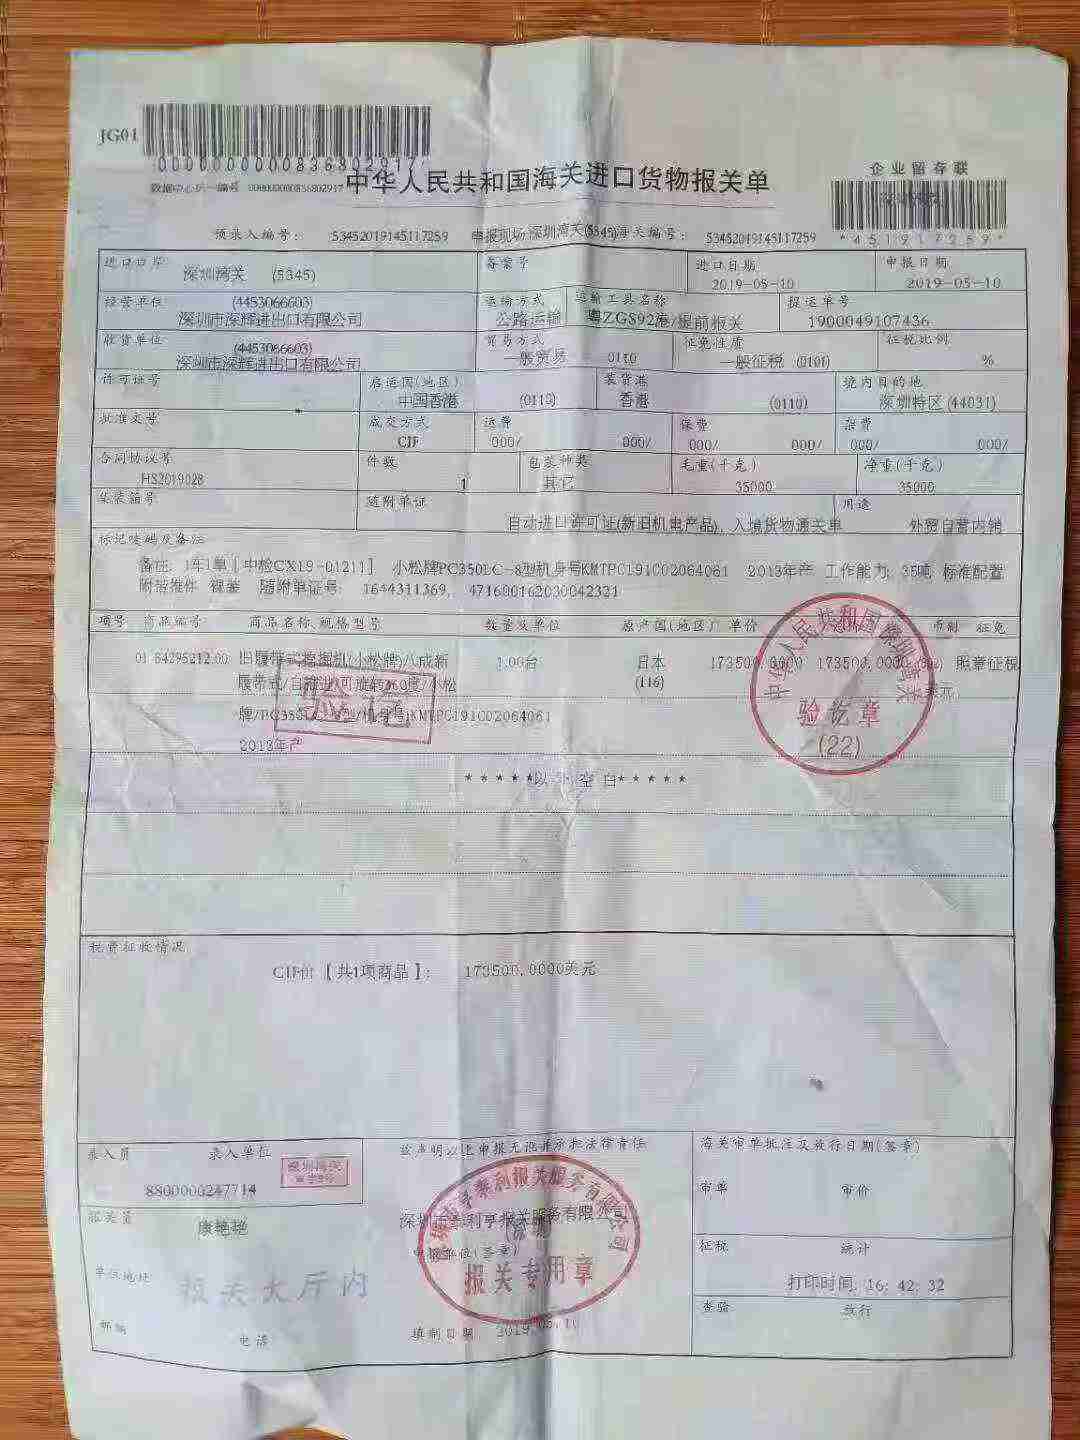 JG01
0000000000836802917
数据中心统一编号 0000000000836802917
中华人民共和国海关进口货物报关单
企业留存联
*451917259*
预录入编号: 53452019145117259 申报现场:深圳湾关(5345)海关编号: 53452019145117259
进口口岸 备案号 进口日期 申报日期
深圳湾关 (5345) 2019-05-10 2019-05-10
经营单位 (4453066603) 运输方式 运输工具名称 提运单号
深圳市深辉进出口有限公司 公路运输 粤ZGS92港/提前报关 1900049107436
收货单位 (4453066603) 贸易方式 征免性质 征税比例
深圳市深辉进出口有限公司 一般贸易 0110 一般征税 (0101) %
许可证号 启运国(地区) 装货港 境内目的地
中国香港 (0110) 香港 (0110) 深圳特区 (44031)
批准文号 成交方式 运费 保费 杂费
CIF 000/ 000/ 000/ 000/ 000/ 000/
合同协议号 件数 包装种类 毛重(千克) 净重(千克)
HS2019028 1 其它 35000 35000
集装箱号 随附单证 用途
自动进口许可证(新旧机电产品), 入境货物通关单 外贸自营内销
标记唛码及备注
备注: 1车1单[中检CX19-01211] 小松牌PC350LC-8型机身号KMTPC191C02064061 2013年产 工作能力: 35吨 标准配置
附带推件 裸装 随附单证号: 1644311369, 471600162030042321
项号 商品编号 商品名称、规格型号 数量及单位 原产国(地区) 单价 币制 征免
01 84295212.00 旧履带式挖掘机(小松牌)八成新 1.00台 日本 173500.0000 173500.0000 照章征税
履带式/自推进/可旋转360度/小松 (116) 美元
牌/PC350LC-8型/机身号KMTPC191C02064061
2013年产
*****以下空白*****
中华人民共和国深圳湾关
验讫章
(22)
税费征收情况
CIF价【共1项商品】: 173500.0000美元
录入员 录入单位 兹声明以上申报无讹并承担法律责任 海关审单批注及放行日期(签章)
8800000247714 审单 审价
报关员 康艳艳 深圳市泰利亨报关服务有限公司
申报单位(签章) 征税 统计
报关专用章
单位地址 报关大厅内 打印时间: 16: 42: 32
查验 放行
邮编 电话 填制日期 2019.05.10